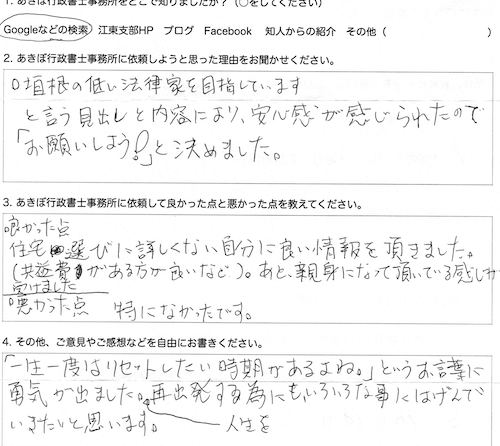 1. あきば行政書士事務所をどこで知りましたか？（○をしてください）
Googleなどの検索 江東支部HP ブログ Facebook 知人からの紹介 その他（ ）
2. あきば行政書士事務所に依頼しようと思った理由をお聞かせください。
○垣根の低い法律家を目指しています
と言う見出しと内容により、安心感が感じられたので
「お願いしよう！」と決めました。
3. あきば行政書士事務所に依頼して良かった点と悪かった点を教えてください。
良かった点
住宅選びに詳しくない自分に良い情報を頂きました。
（共益費がある方が良いなど）。あと、親身になって頂いている感じが
受けました
悪かった点 特になかったです。
4. その他、ご意見やご感想などを自由にお書きください。
「一生一度はリセットしたい時期があるよね。」というお言葉に
勇気が出ました。再出発する為にもいろいろな事にはげんで
いきたいと思います。 人生を